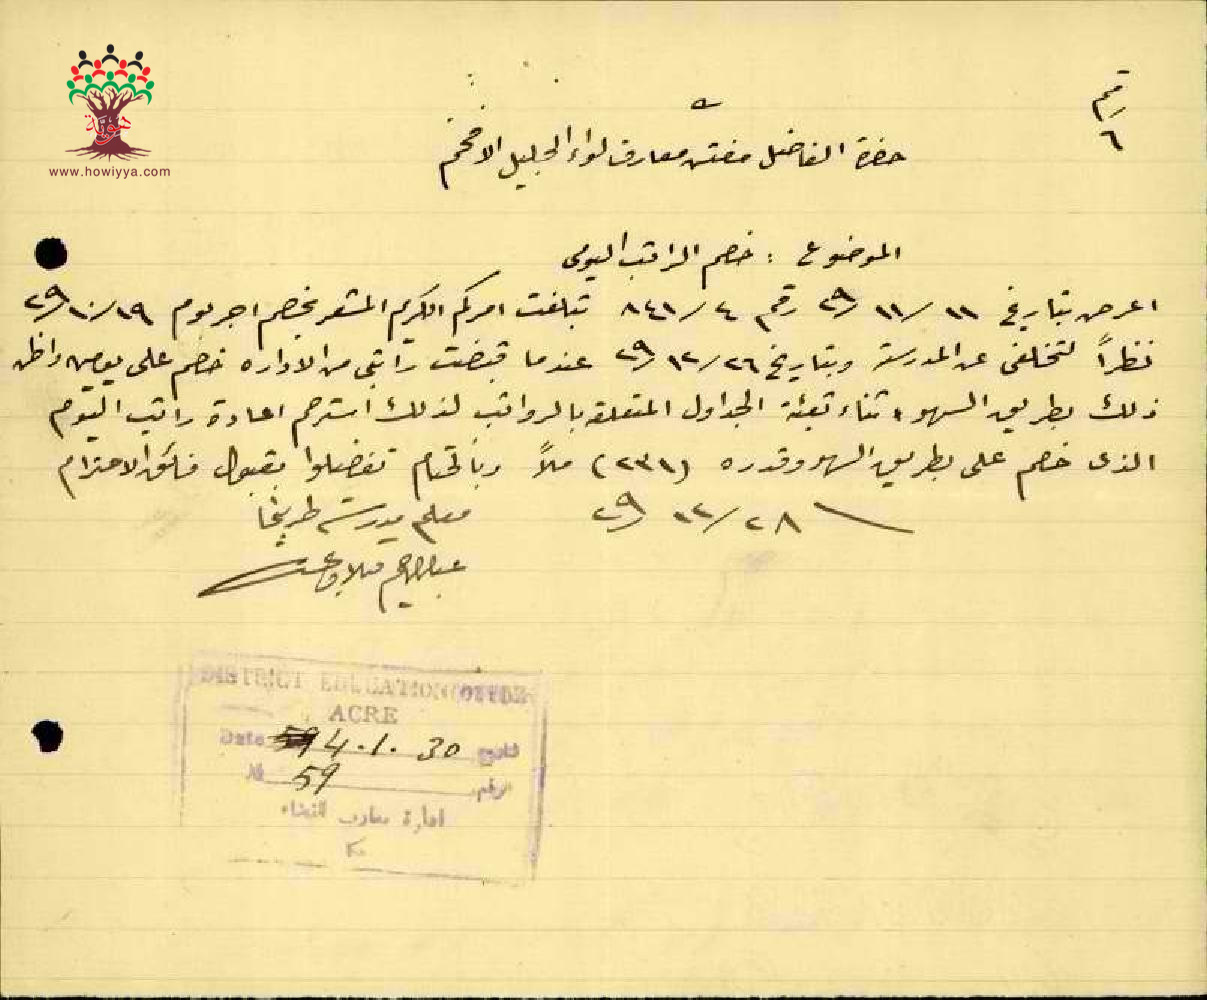 رقم
٦
حضرة الفاضل مفتش معارف لواء الجليل الافخم
الموضوع : خصم الراتب اليومي
اعرض بتاريخ ١١/١١ ٢٩ رقم ٤/٨٤١ تبلغت امركم الكريم المشعر بخصم اجر يوم ١٩/١٠ ٢٩
نظراً لتخلفي عن المدرسة وبتاريخ ٢٦/١٢ ٢٩ عندما قبضت راتبي من الاداره خصم علي يومين واظن
ذلك بطريق السهو اثناء تعبئة الجداول المتعلقة بالرواتب لذلك أسترحم اعادة راتب اليوم
الذي خصم علي بطريق السهو وقدره (٢٣١) ملاً وبالختام تفضلوا بقبول فائق الاحترام
٢٨/١٢ ٢٩
معلم مدرسة طربيخا
هوية
www.howiyya.com
DISTRICT EDUCATION OFFICE
ACRE
Date 4.1.30 تاريخ
No 59 الرقم
ادارة معارف القضاء
عكا